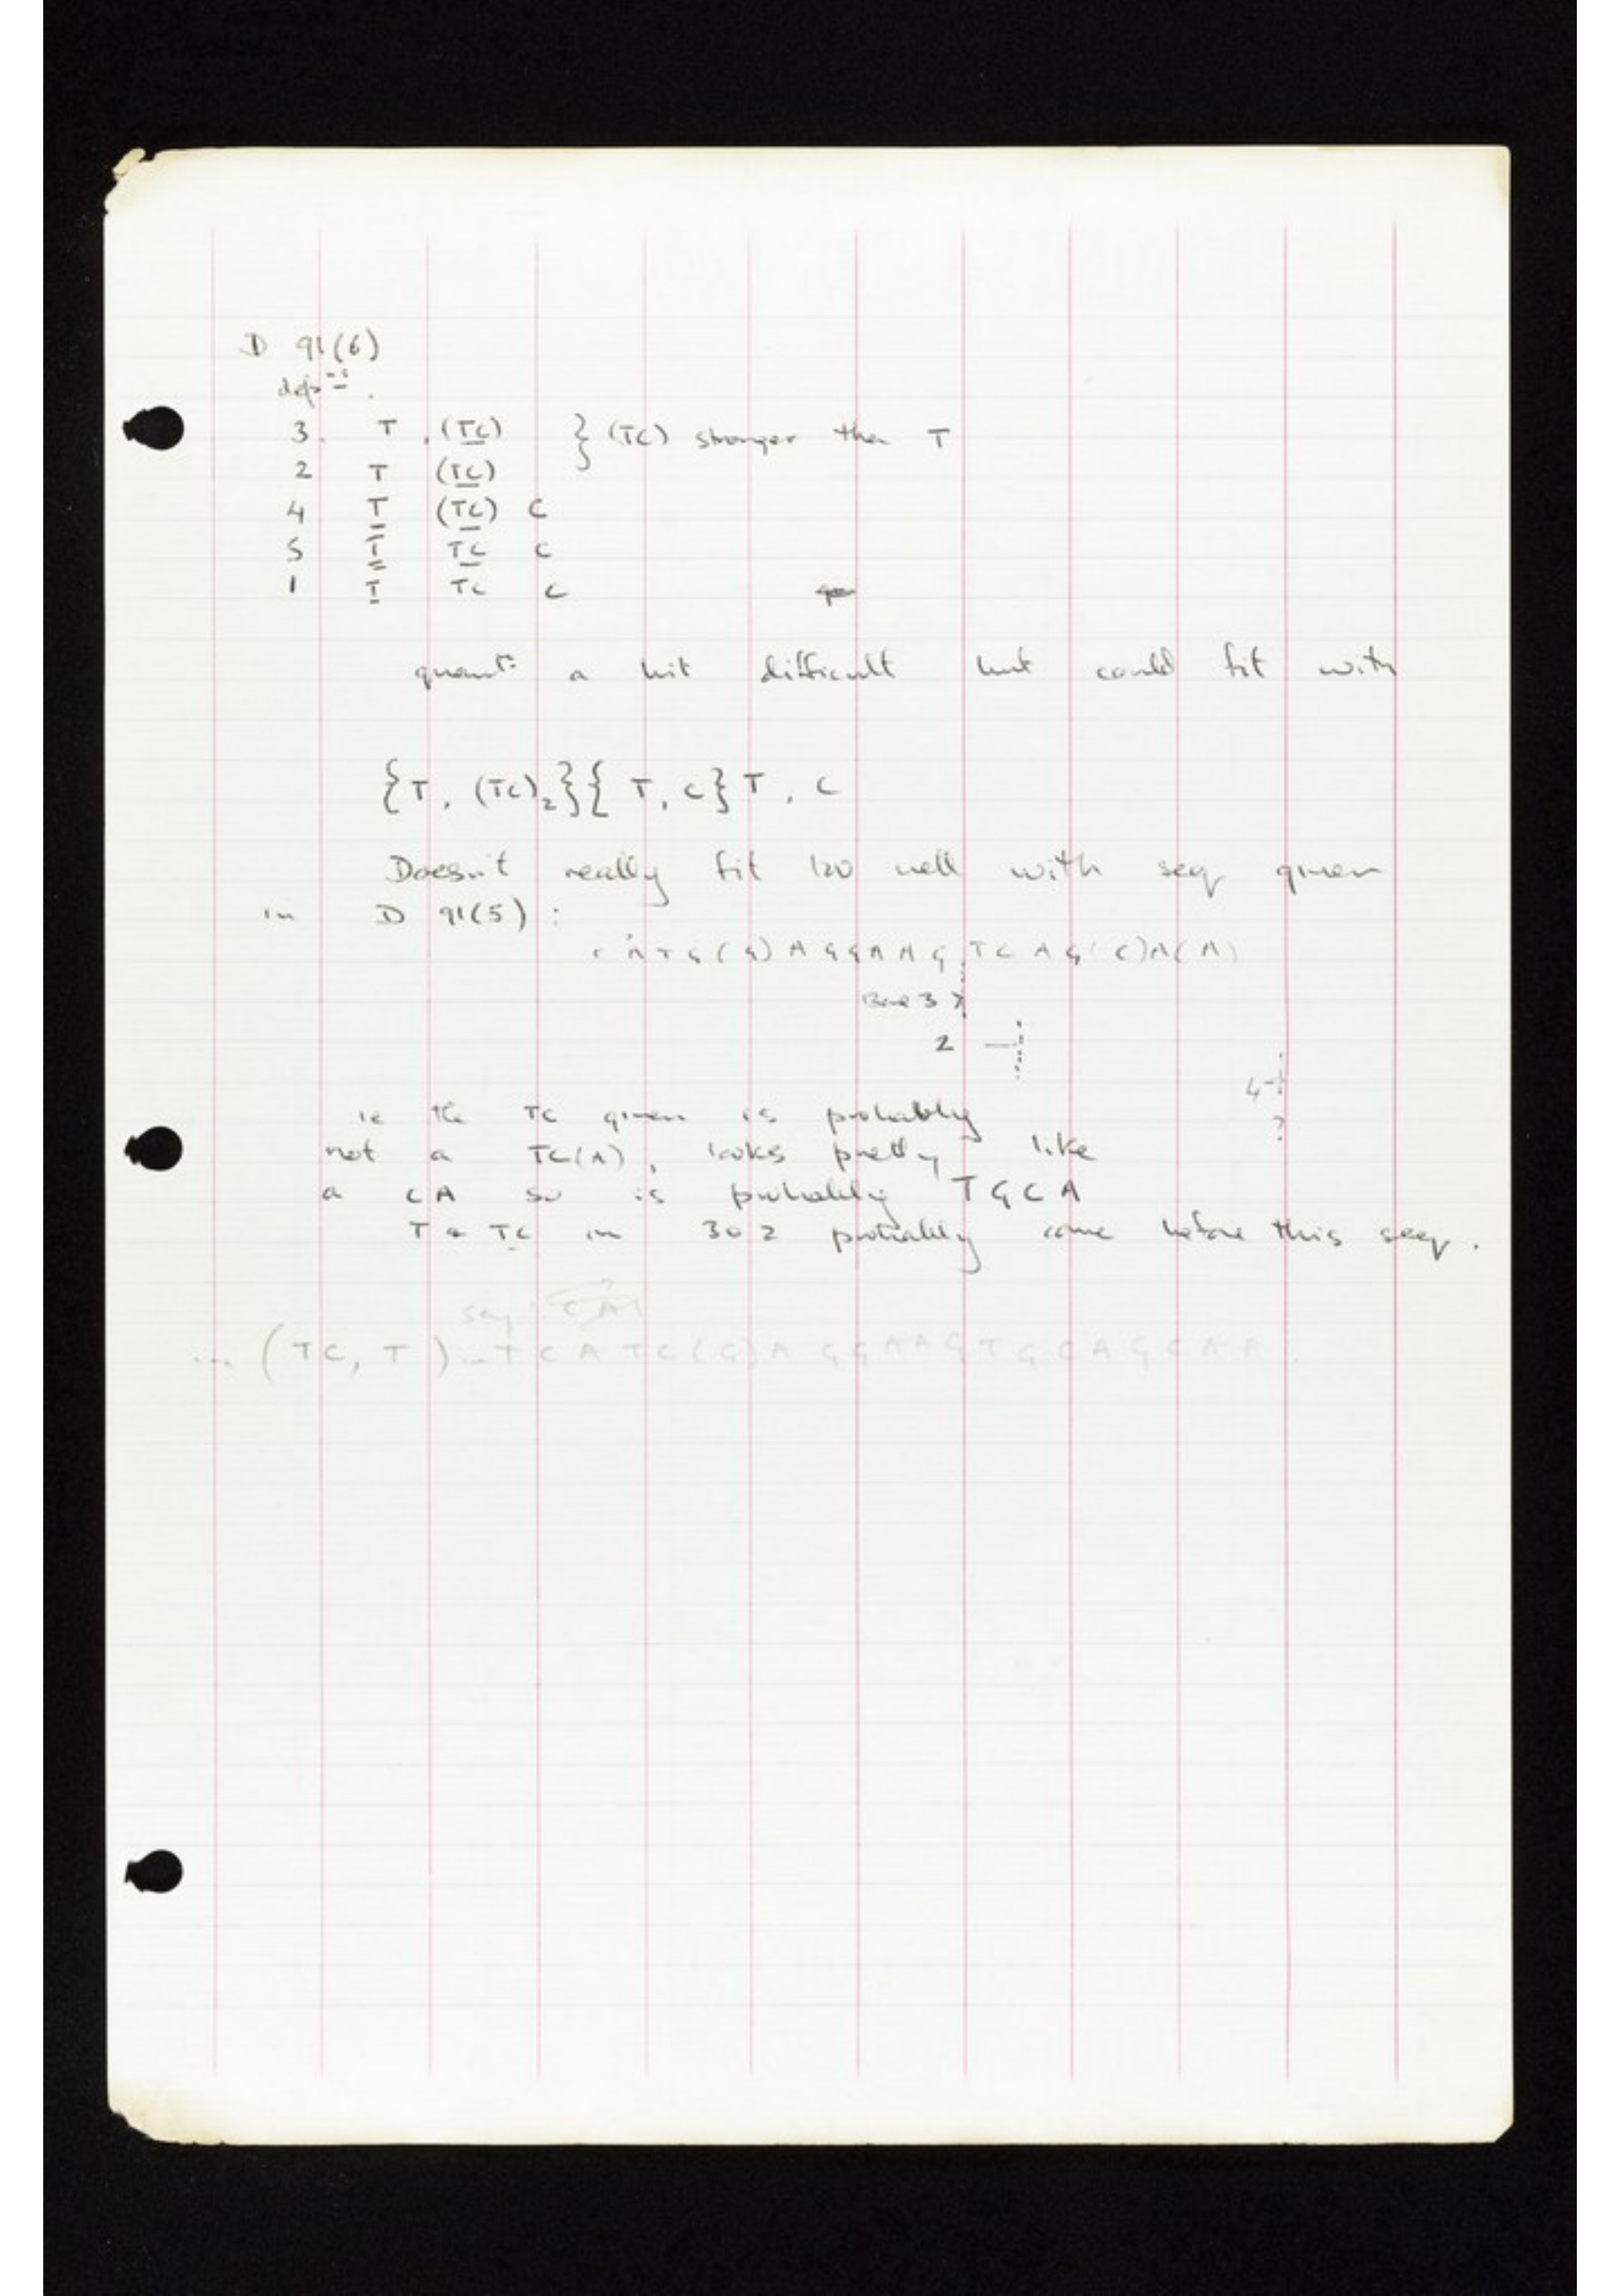 D 91(6)
depns.
3. T . (TC) } (TC) stronger than T
2 T (TC)
4 T (TC) C
5 T TC C
1 T TC C
quant: a bit difficult but could fit with
{T, (TC)2}{T, C}T, C
Doesn't really fit too well with seq given
in D 91(5) :
C A T G (G) A G G A A G T C A G (C) A (A)
Band 3
2
4
?
ie the TC given is probably
not a TC(A), looks pretty like
a CA so is probably TGCA
T & TC in 3 & 2 probably come before this seq.
say: CA
... (TC, T)...TCATC(G)AGGAAGTGCAGCAA.